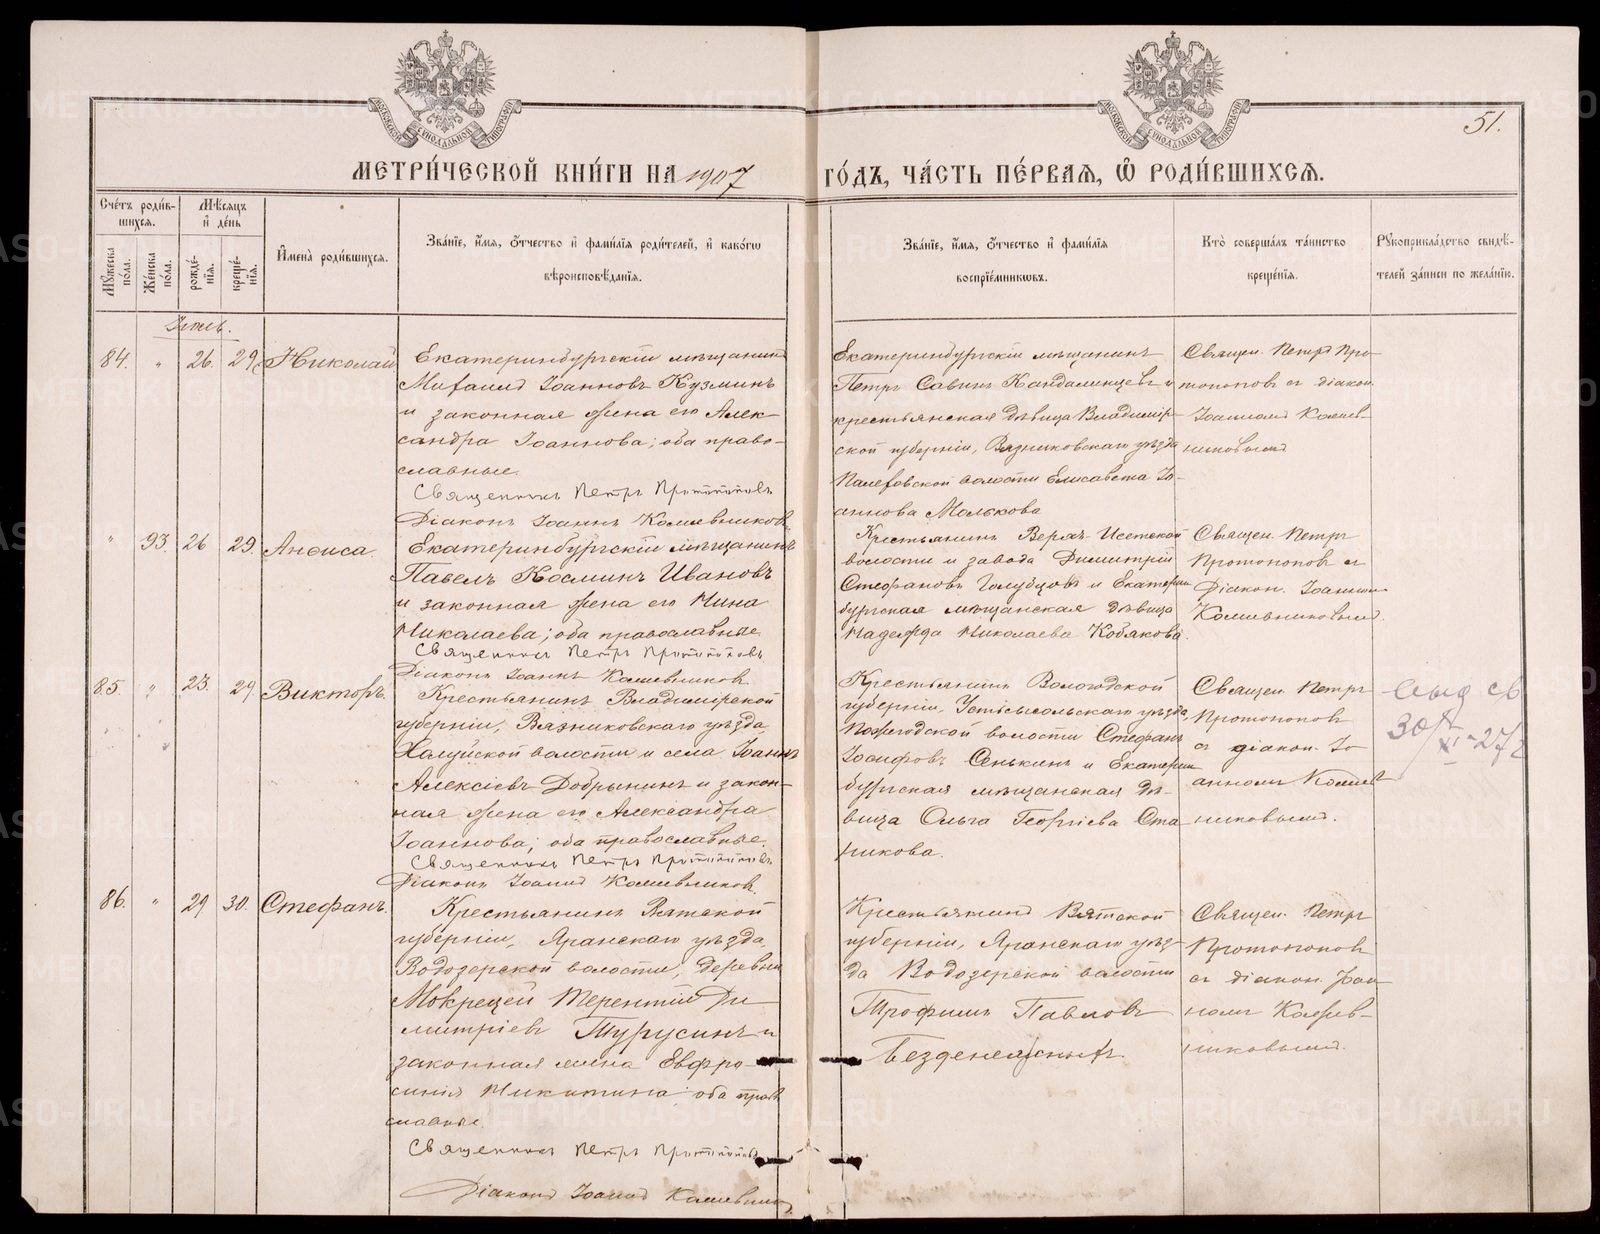 51.
МЕТРИ́ЧЕСКОЙ КНИ́ГИ НА 1907 ГО́ДЪ, ЧА́СТЬ ПЕ́РВАЯ, Ѡ҆ РОДИ́ВШИХСЯ.
Сче́тъ роди́в-
шихся.
Мѣ́сяцъ
и҆ де́нь
Му́жеска
по́ла.
Же́нска
по́ла.
рожде́-
нїя.
креще́-
нїя.
И҆мена̀ роди́вшихся.
Зва́нїе, и҆́мя, ѻ҆́тчество и҆ фами́лїя роди́телей, и҆ како́гѡ
вѣроисповѣ́данїя.
Зва́нїе, и҆́мя, ѻ҆́тчество и҆ фами́лїя
воспрїе́мникѡвъ.
Кто̀ соверша́лъ та́инство
креще́нїя.
Рꙋкоприкла́дство свидѣ́-
телей за́писи по жела́нїю.
Іюль.
84. " 26. 29. Николай
Екатеринбургскій мѣщанинъ
Михаилъ Іоанновъ Кузминъ
и законная жена его Алек-
сандра Іоаннова; оба право-
славные.
Священникъ Петръ Протопоповъ
Діаконъ Іоаннъ Кожевниковъ
Екатеринбургскій мѣщанинъ
Петръ Савинъ и
крестьянская дѣвица Владимір-
ской губерніи, Вязниковскаго уѣзда
Палеховской волости Елисавета Іо-
аннова Молькова
Священ. Петръ Про-
топоповъ съ діакон.
Іоанномъ Кожев-
никовымъ
" 93. 26 29. Анѳиса.
Екатеринбургскій мѣщанинъ
Павелъ Косминъ Ивановъ
и законная жена его Нина
Николаева; оба православные
Священникъ Петръ Протопоповъ
Діаконъ Іоаннъ Кожевников.
Крестьянинъ Верхъ-Исетской
волости и завода Димитрій
Стефановъ Голубцовъ и Екатерин
бургская мѣщанская дѣвица
Надежда Николаева Кобякова.
Священ. Петръ
Протопопов съ
Діакон. Іоанном
Кожевниковымъ.
85. " 23. 29. Викторъ.
Крестьянинъ Владимірской
губерніи, Вязниковскаго уѣзда,
Холуйской волости и села Іоаннъ
Алексіевъ Добрынинъ и закон-
ная жена его Александра
Іоаннова; оба православные.
Священникъ Петръ Протопоповъ
Діаконъ Іоаннъ Кожевников.
Крестьянинъ Вологодской
губерніи, Устьсысольскаго уѣзда,
волости Стефанъ
Іосифовъ Сенькинъ и Екатерин
бургская мѣщанская дѣ-
вица Ольга Георгіева Ста
никова.
Священ. Петръ
Протопоповъ
съ діакон. Іо
анномъ Кожев
никовымъ.
30/XI-27г
86. " 29 30. Стефанъ.
Крестьянинъ Вятской
губерніи, Яранскаго уѣзда,
Водозерской волости, деревни
Мокрецей Терентій Ди
митріевъ Турусинъ и
законная жена Евфро-
синія Никитина оба прав
славные.
Священникъ Петръ Протопоповъ
Діаконъ Іоаннъ Кожевников
Крестьянинъ Вятской
губерніи, Яранскаго уѣз-
да Водозерской волости
Трофимъ Павловъ
Безденежныхъ.
Священ. Петръ
Протопопов
съ діакон. Іоан
номъ Кожев-
никовымъ.